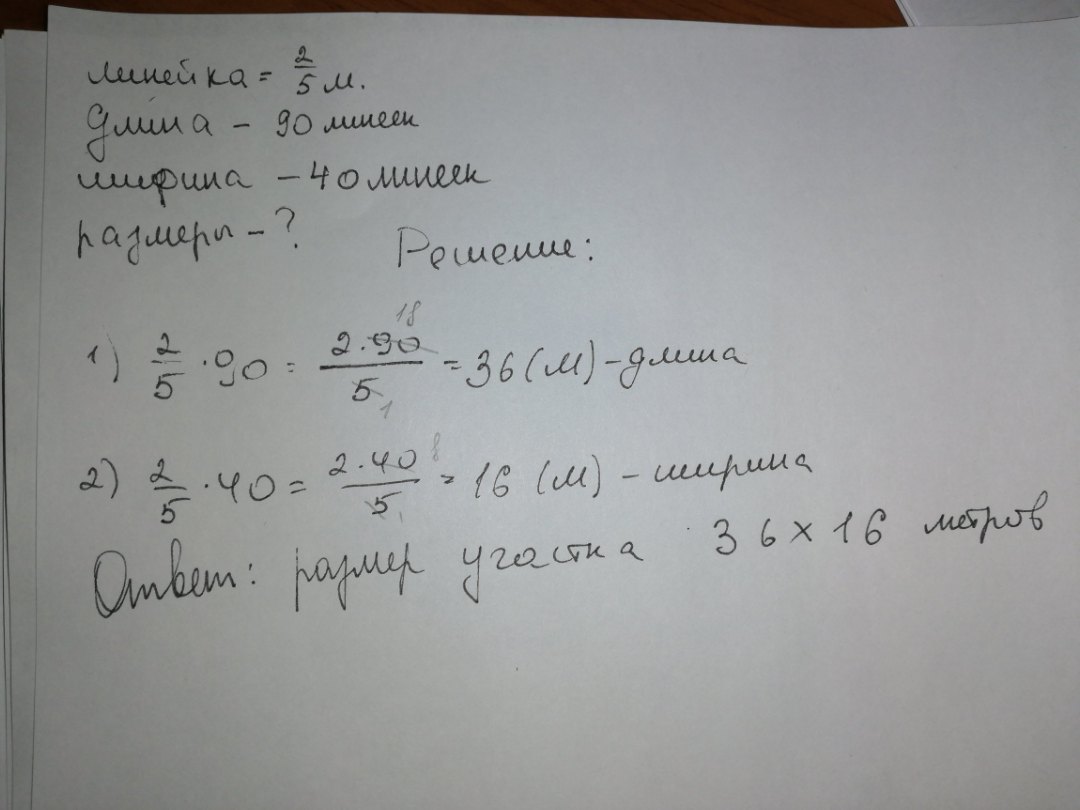 линейка = 2/5 м.
длина – 90 линеек
ширина – 40 линеек
размеры – ?
Решение:
1) 2/5 · 90 = 2·90/5 = 36 (м) – длина
18
1
2) 2/5 · 40 = 2·40/5 = 16 (м) – ширина
8
1
Ответ: размер участка 36 × 16 метров